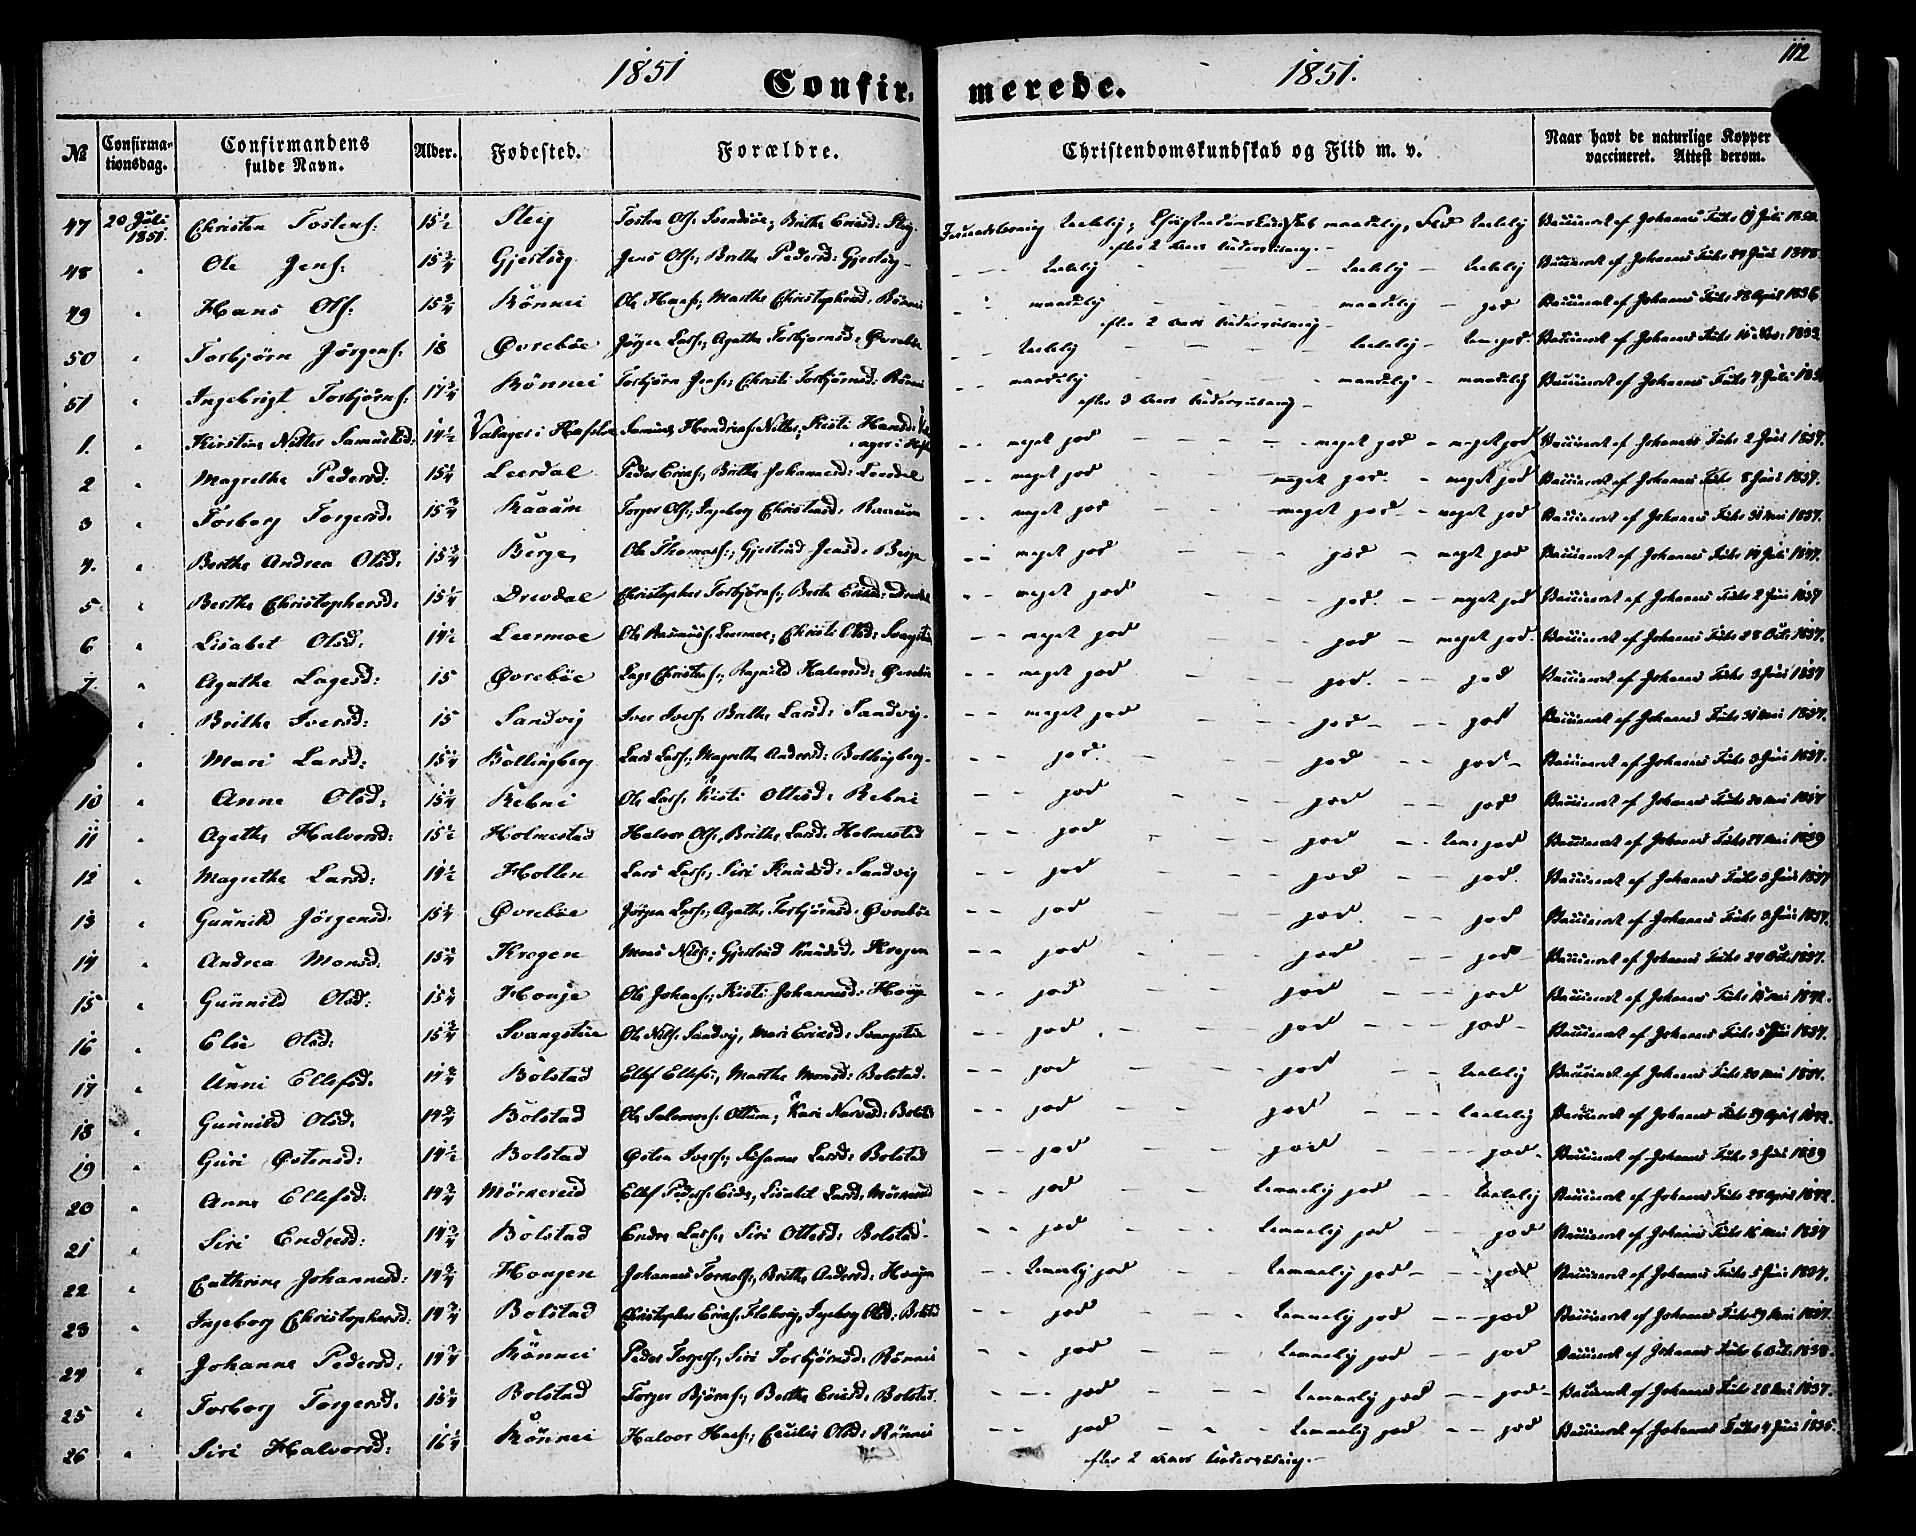 1851 Confir- merede. 1851. 112
№ Confirma-tionsdag. Confirmandens fulde Navn. Alder. Fødested. Forældre. Christendomskundskab og Flid m. v. Naar havt de naturlige Kopper vaccineret. Attest derom.
47 20 Juli 1851. Christen Tostens: 15½ Steig Tosten Ols: Svendsøe, Brithe Ericsd: Steig taalelig, Christendomskundskab maadelig, Flid taalelig Vaccineret af Johannes Fuhr 19 Juli 1850.
efter 2 Aars Underviisning.
48 " Ole Jens: 15¾ Gjesteig Jens Ols: Brithe Pedersd: Gjesteig taalelig taalelig taalelig Vaccineret af Johannes Fuhr 1848.
49 " Hans Ols: 15¾ Rönnei Ole Hans: Marthe Christophersd: Rönnei maadelig maadelig god Vaccineret af Johannes Fuhr 28 April 1836
efter 2 Aars Underviisning
50 " Torbjörn Jörgens: 18 Øvrebøe Jörgen Lars:, Agathe Torbjørnsd: Øvrebøe taalelig taalelig god Vaccineret af Johannes Fuhr 1833.
51 " Ingebrigt Torbjörns: 17¾ Rönnei Torbjörn Jens: Christi Torbjörnsd: Rönnei maadelig maadelig maadelig Vaccineret af Johannes Fuhr 4 Juli
efter 3 Aars Underviisning
1. " Kirstine Nitter Samuelsd: 14½ Valager i Hafslo Hendrics: Nitter, Kristi Hansd: meget god meget god meget god Vaccineret af Johannes Fuhr 2 Juni 1837.
2 " Magrethe Pedersd: 15¼ Leerdal Peder Erics:, Brithe Johannesd: Leerdal meget god meget god meget god Vaccineret af Johannes Fuhr 8 Juni 1837.
3 " Torborg Torgersd: 15¾ Raaum Torger Ols:, Ingeborg Christensd: Raaum meget god meget god meget god Vaccineret af Johannes Fuhr 31 Mai 1837.
4. " Berthe Andrea Olsd: 15¾ Berge, Ole Thomas:, Gjertrud Jensd: Berge meget god god meget god Vaccineret af Johannes Fuhr 19 Juli 1847.
5 " Berthe Christophersd: 15¼ Drevdal Christopher Torbjörns:, Berte Ericsd: Drevdal meget god god. meget god Vaccineret af Johannes Fuhr 2 Juni 1837
6 " Lisabet Olsd: 14½ Leermoe Ole Rasmus: Leermoe; Christi Olsd: Svangstue meget god god meget god Vaccineret af Johannes Fuhr 28 Octr. 1837.
7. " Agathe Lagesd: 15 Øvrebøe Lage Christens:, Ragnild Halvorsd: Øvrebøe meget god god. god Vaccineret af Johannes Fuhr 3 Juni 1837
" Brithe Iversd: 15 Sandvig Iver Ivers: Brithe Larsd: Sandvig. meget god god god Vaccineret af Johannes Fuhr 31 Mai 1837.
" Mari Larsd: 15¼ Bollingberg Lars Lars:, Magrethe Andersd: Bollingberg god. god god Vaccineret af Johannes Fuhr 3 Juni 1837.
10 " Anne Olsd: 15¼ Rebni Ole Lars: Kristi Ottesd: Rebni god god god Vaccineret af Johannes Fuhr 20 Mai 1837
11 " Agathe Halvorsd: 15½ Holmestad Halvor Ols:, Brithe Larsd: Holmestad god god god Vaccineret af Johannes Fuhr 27 Mai 1839
12 " Magrethe Larsd: 14½ Hollen Lars Lars:, Siri Knudsd: Sandvig god god god. Vaccineret af Johannes Fuhr 3 Juni 1837
13 " Gunnild Jörgensd: 15¼ Øvrebøe Jörgen Lars:, Agathe Torbjörnsd: Øvrebøe god god. god Vaccineret af Johannes Fuhr 3 Juni 1837.
14 " Andrea Monsd: 15¼ Krogen Mons Nils:; Gjertrud Knudsd: Krogen god god god Vaccineret af Johannes Fuhr 24 Octr. 1837.
15 " Gunnild Olsd: 15¼ Houge Ole Johans:, Kristi Johannesd: Houge god god god Vaccineret af Johannes Fuhr 18 Mai 1842.
16 " Elie Olsd: 15¾ Svangstue Ole Nils: Sandvig, Mari Ericsd: Svangstue god god god Vaccineret af Johannes Fuhr 5 Juni 1837.
17 " Unni Ellefsd. 14¾ Bolstad Ellef Ellefs:, Marthe Monsd: Bolstad. god god taalelig Vaccineret af Johannes Fuhr 20 Mai 1837.
18 " Gunnild Olsd. 14¾ Bolstad Ole Salomons: Ottum; Kari Bolstad god god taalelig Vaccineret af Johannes Fuhr 29 April 1842.
19 " Guri Østensd: 14½ Bolstad Østen Ivers:, Susanne Larsd: Bolstad god god god Vaccineret af Johannes Fuhr 3 Juni 1839
20 " Anne Ellefsd: 14¾ Mörnereid Ellef Peders: Eide, Lisabet Larsd: Mörnereid god temmelig god taalelig Vaccineret af Johannes Fuhr 28 April 1842.
21 " Siri Endresd: 14¾ Bolstad Endre Lars:, Siri Ottesd: Bolstad god temmelig god god Vaccineret af Johannes Fuhr 18 Mai 1837
22 " Cathrine Johannesd: 14¾ Hougen Johannes Brithe Andersd: Hougen temmelig god temmelig god god Vaccineret af Johannes Fuhr 5 Juni 1837.
23 " Ingeborg Christophersd: 14¾ Bolstad Christopher Erics: Ingeborg Olsd: Bolstad god temmelig god god Vaccineret af Johannes Fuhr 29 Mai 1837.
24 " Johanne Pedersd: 14¾ Rönnei Peder Torgers:, Siri Torbjörnsd: Rönnei god temmelig god god Vaccineret af Johannes Fuhr 6 Oct. 1838.
25 " Torborg Torgersd. 15¼ Bolstad Torger Björns:, Berthe Ericsd: Bolstad. god temmelig god god Vaccineret af Johannes Fuhr 28 Mai 1837.
26 " Siri Halvorsd: 16¼ Rönnei Halvor Hans:, Cecilie Olsd: Rönnei god temmelig god god Vaccineret af Johannes Fuhr 4 Juni 1836.
efter 2 Aars Underviisning.